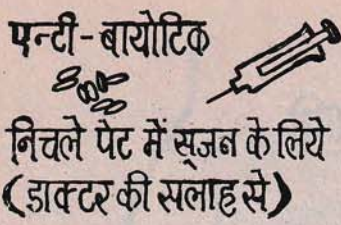 एन्टी-बायोटिक
निचले पेट में सूजन के लिये
(डाक्टर की सलाह से)